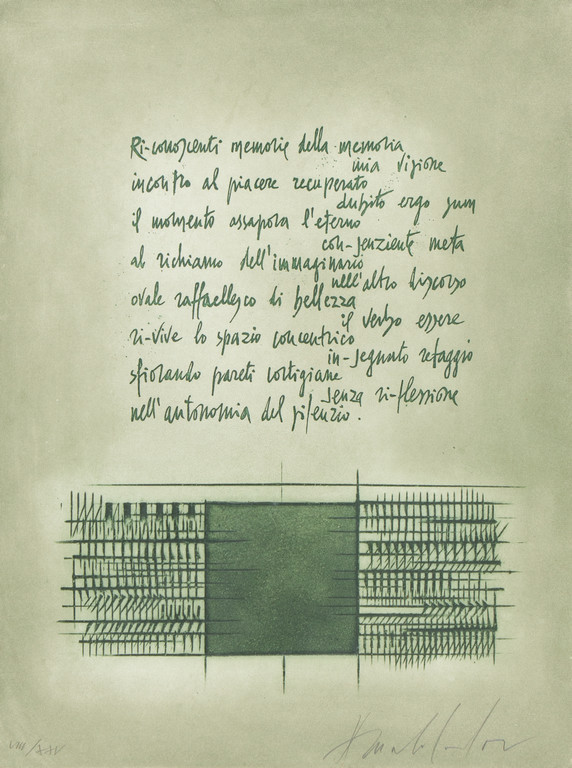 Ri-conoscenti memorie della memoria
mia visione
incontro al piacere recuperato
dubito ergo sum
il momento assapora l'eterno
con-senziente meta
al richiamo dell'immaginario
nell'altro discorso
ovale raffaellesco di bellezza
il verso essere
ri-vive lo spazio concentrico
in-segnato retaggio
sfiorando pareti cortigiane
senza ri-flessione
nell'autonomia del silenzio.
VIII/XXV